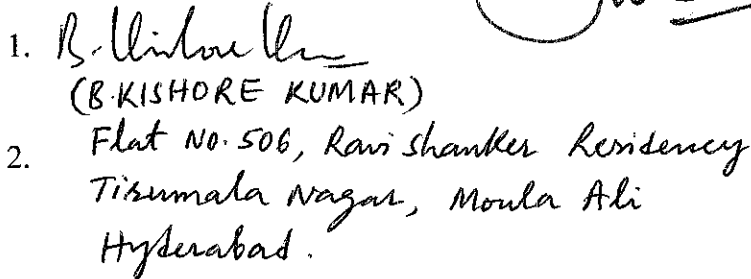 1. B. Kishore Kumar
(B.KISHORE KUMAR)
2. Flat No. 506, Ravi Shanker Residency
Tirumala Nagar, Moula Ali
Hyderabad.